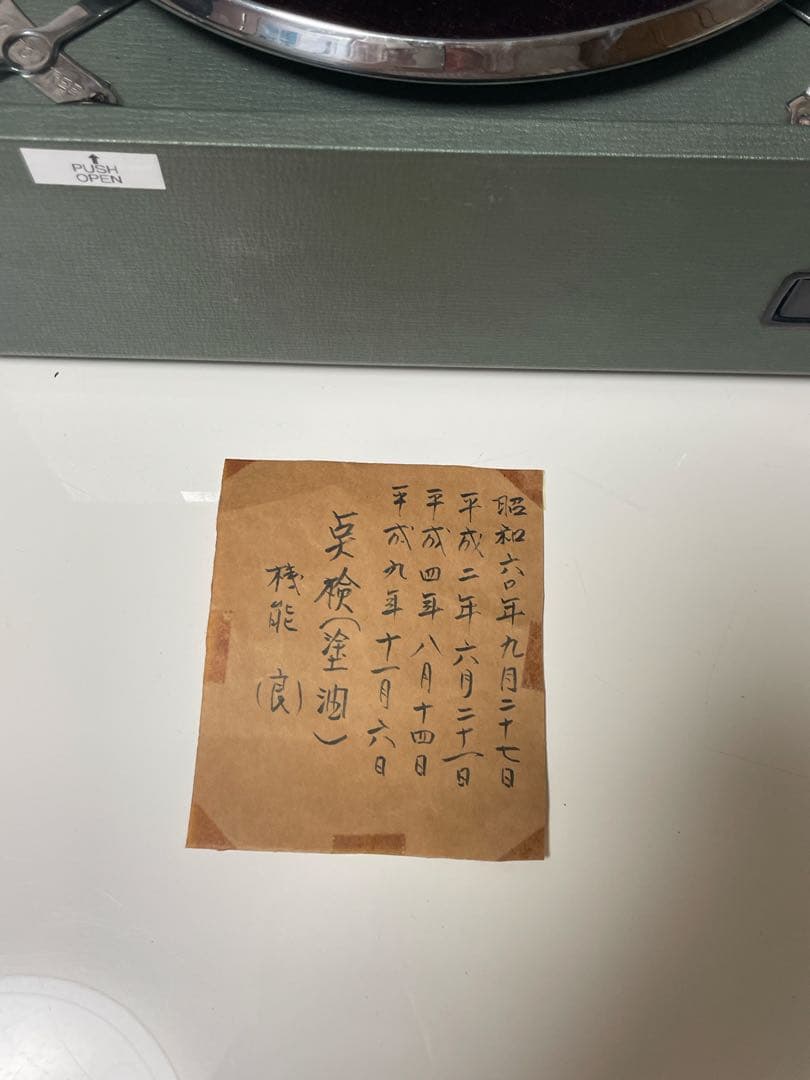 PUSH
OPEN
昭和六〇年九月二十七日
平成二年六月二十一日
平成四年八月十四日
平成九年十一月六日
点検(塗油)
機能 (良)